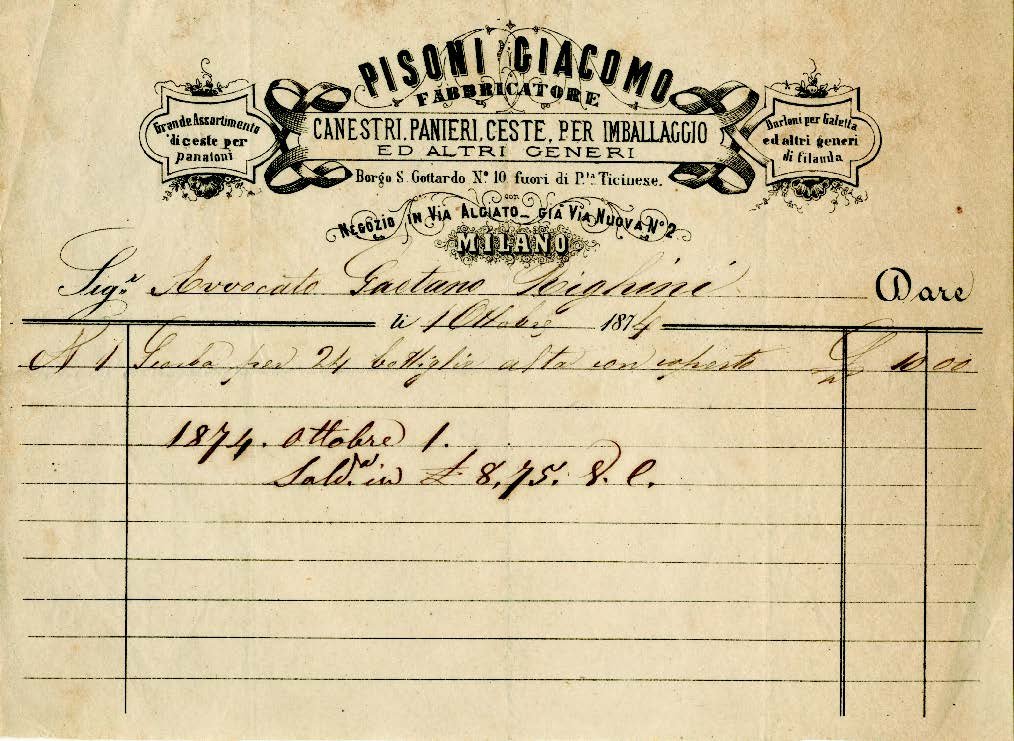 PISONI GIACOMO
FABBRICATORE
CANESTRI, PANIERI, CESTE, PER IMBALLAGGIO
ED ALTRI GENERI
Grande Assortimento
di ceste per
panatoni
Burloni per Galetta
ed altri generi
di filanda
Borgo S. Gottardo N.º 10 fuori di P.ta Ticinese.
con
NEGOZIO IN VIA ALCIATO_ GIÀ VIA NUOVA Nº 2
MILANO
Sig.r Avvocato Gaetano Righini Dare
li 1 Ottobre 1874
N 1 per 24 bottiglie alta con coperto £ 10 00
1874. Ottobre 1.
Sald.a in £ 8,75.